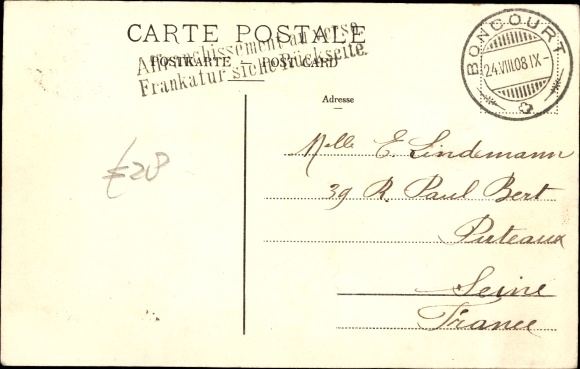 CARTE POSTALE
Affranchissement au verso
POSTKARTE — POST CARD
Frankatur siehe Rückseite.
BONCOURT
24.VIII.08.IX-
Adresse
Melle E. Lindemann
39 R. Paul Bert
Puteaux
Seine
France
£28